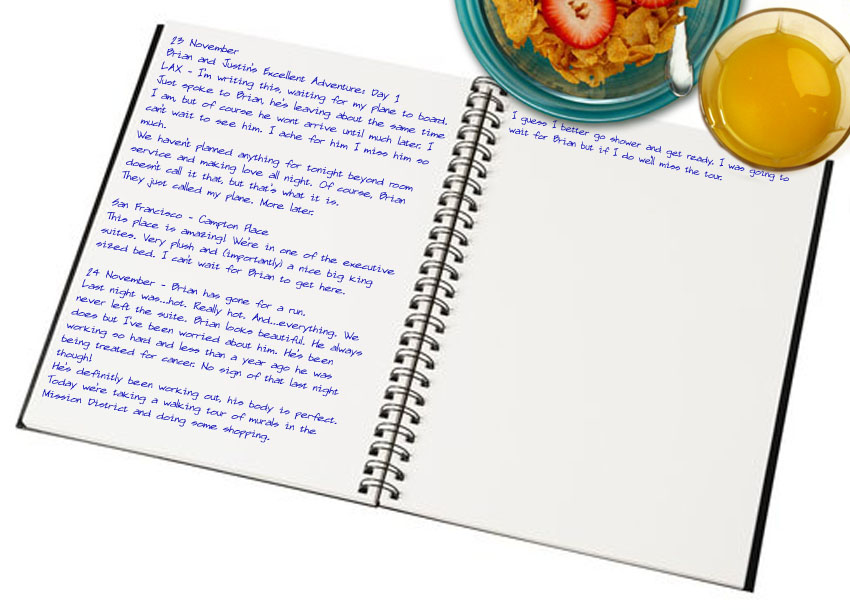 23 November
Brian and Justin's Excellent Adventure: Day 1
LAX - I'm writing this, waiting for my plane to board.
Just spoke to Brian, he's leaving about the same time
I am, but of course he wont arrive until much later. I
can't wait to see him. I ache for him I miss him so
much.
We haven't planned anything for tonight beyond room
service and making love all night. Of course, Brian
doesn't call it that, but that's what it is.
They just called my plane. More later.
San Francisco - Campton Place
This place is amazing! We're in one of the executive
suites. Very plush and (importantly) a nice big king
sized bed. I can't wait for Brian to get here.
24 November - Brian has gone for a run.
Last night was...hot. Really hot. And...everything. We
never left the suite. Brian looks beautiful. He always
does but I've been worried about him. He's been
working so hard and less than a year ago he was
being treated for cancer. No sign of that last night
though!
He's definitly been working out, his body is perfect.
Today we're taking a walking tour of murals in the
Mission District and doing some shopping.
I guess I better go shower and get ready. I was going to
wait for Brian but if I do we'll miss the tour.